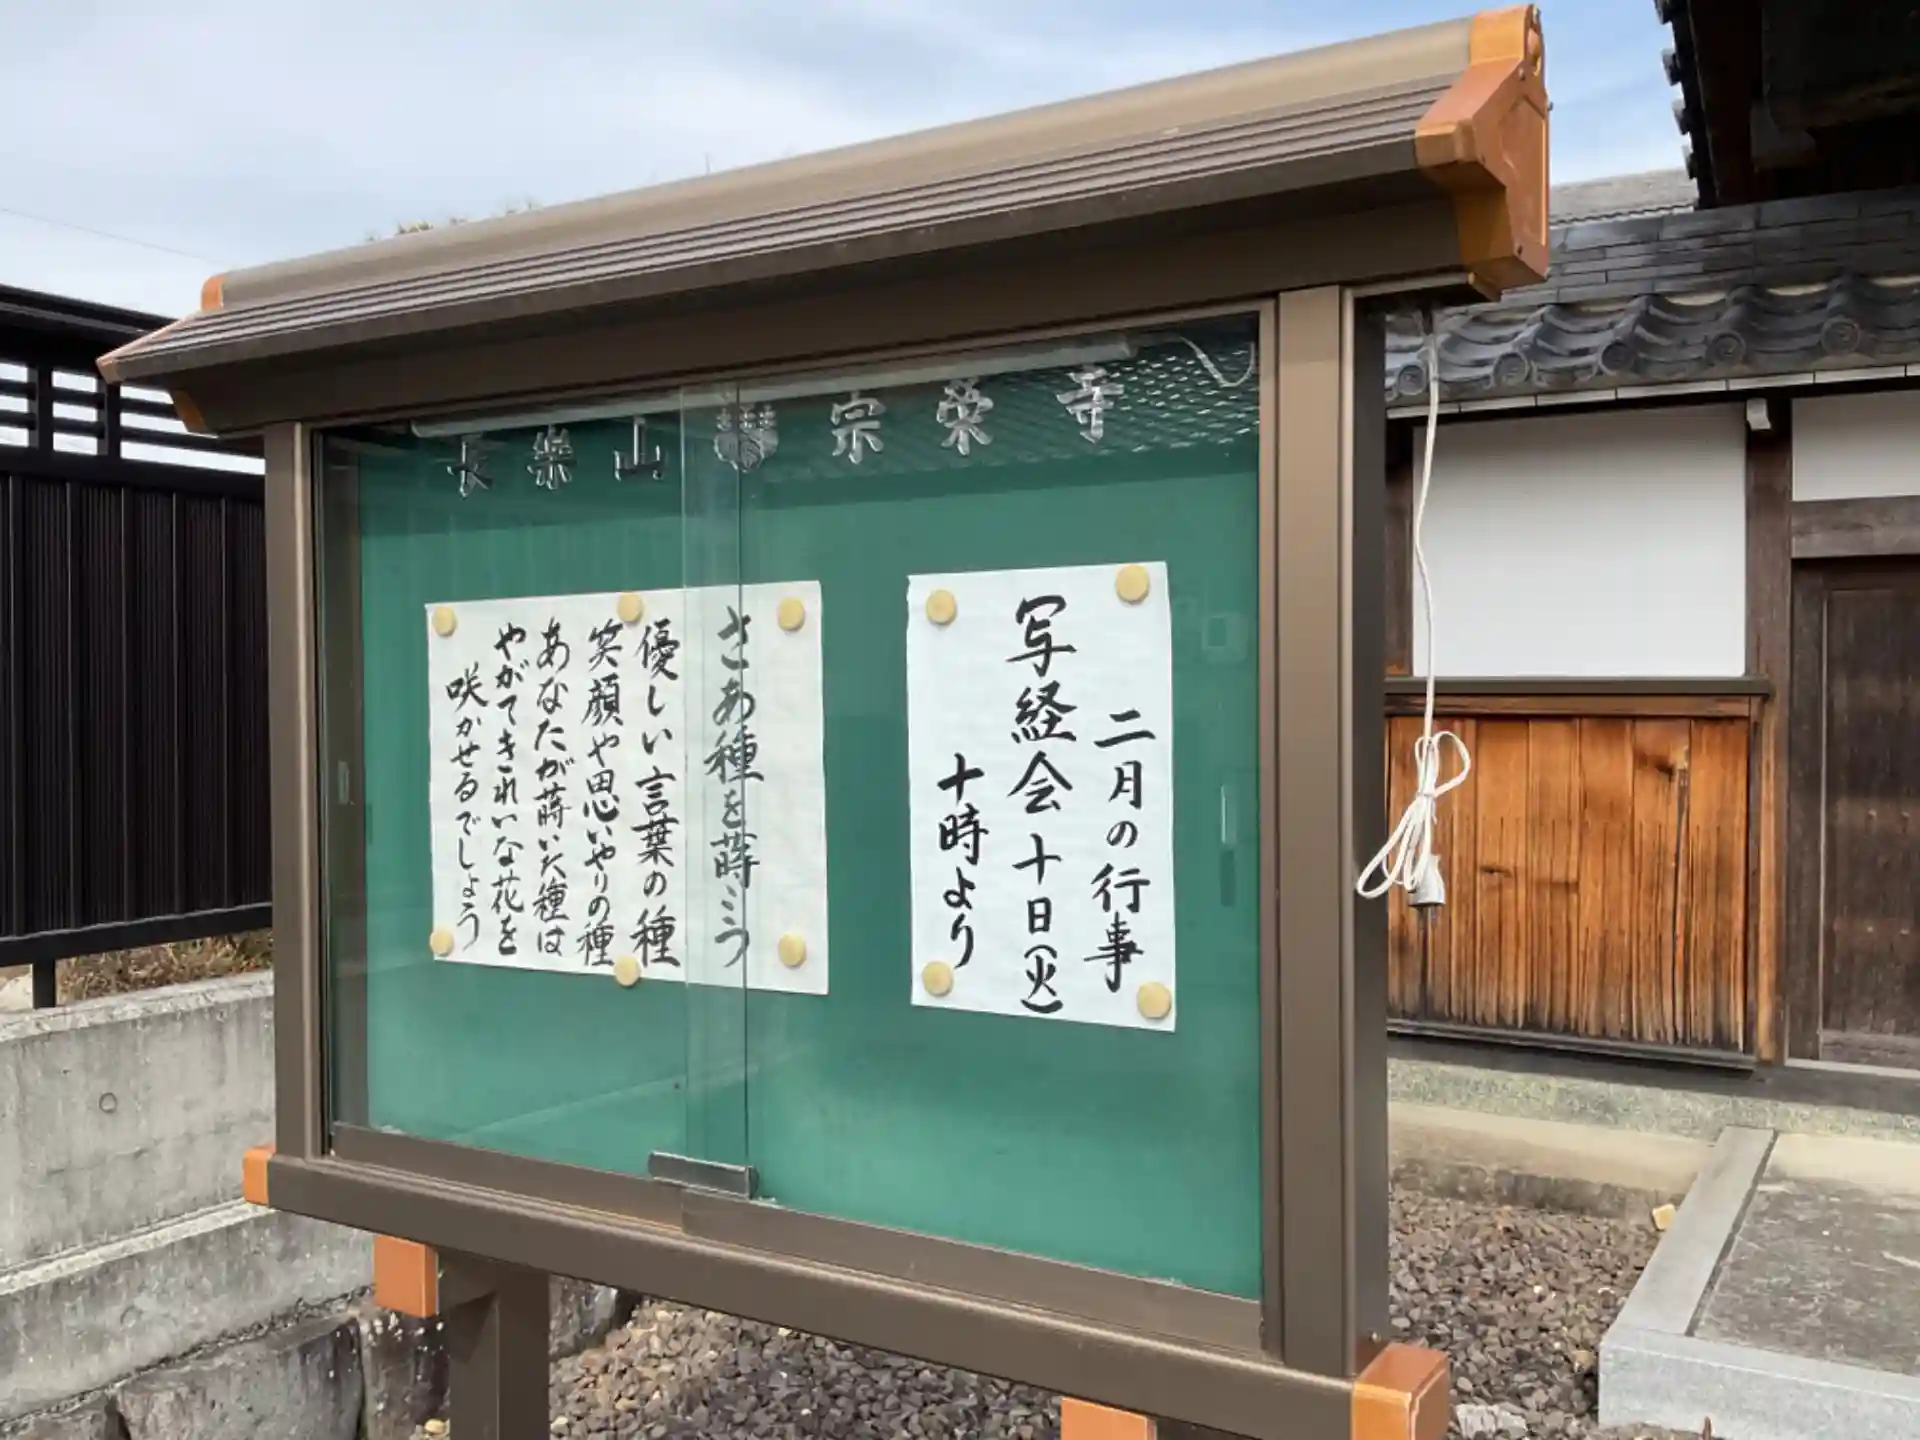 長樂山 宗榮寺
二月の行事
写経会十日(火)
十時より
さあ種を蒔こう
優しい言葉の種
笑顔や思いやりの種
あなたが蒔いた種は
やがてきれいな花を
咲かせるでしょう